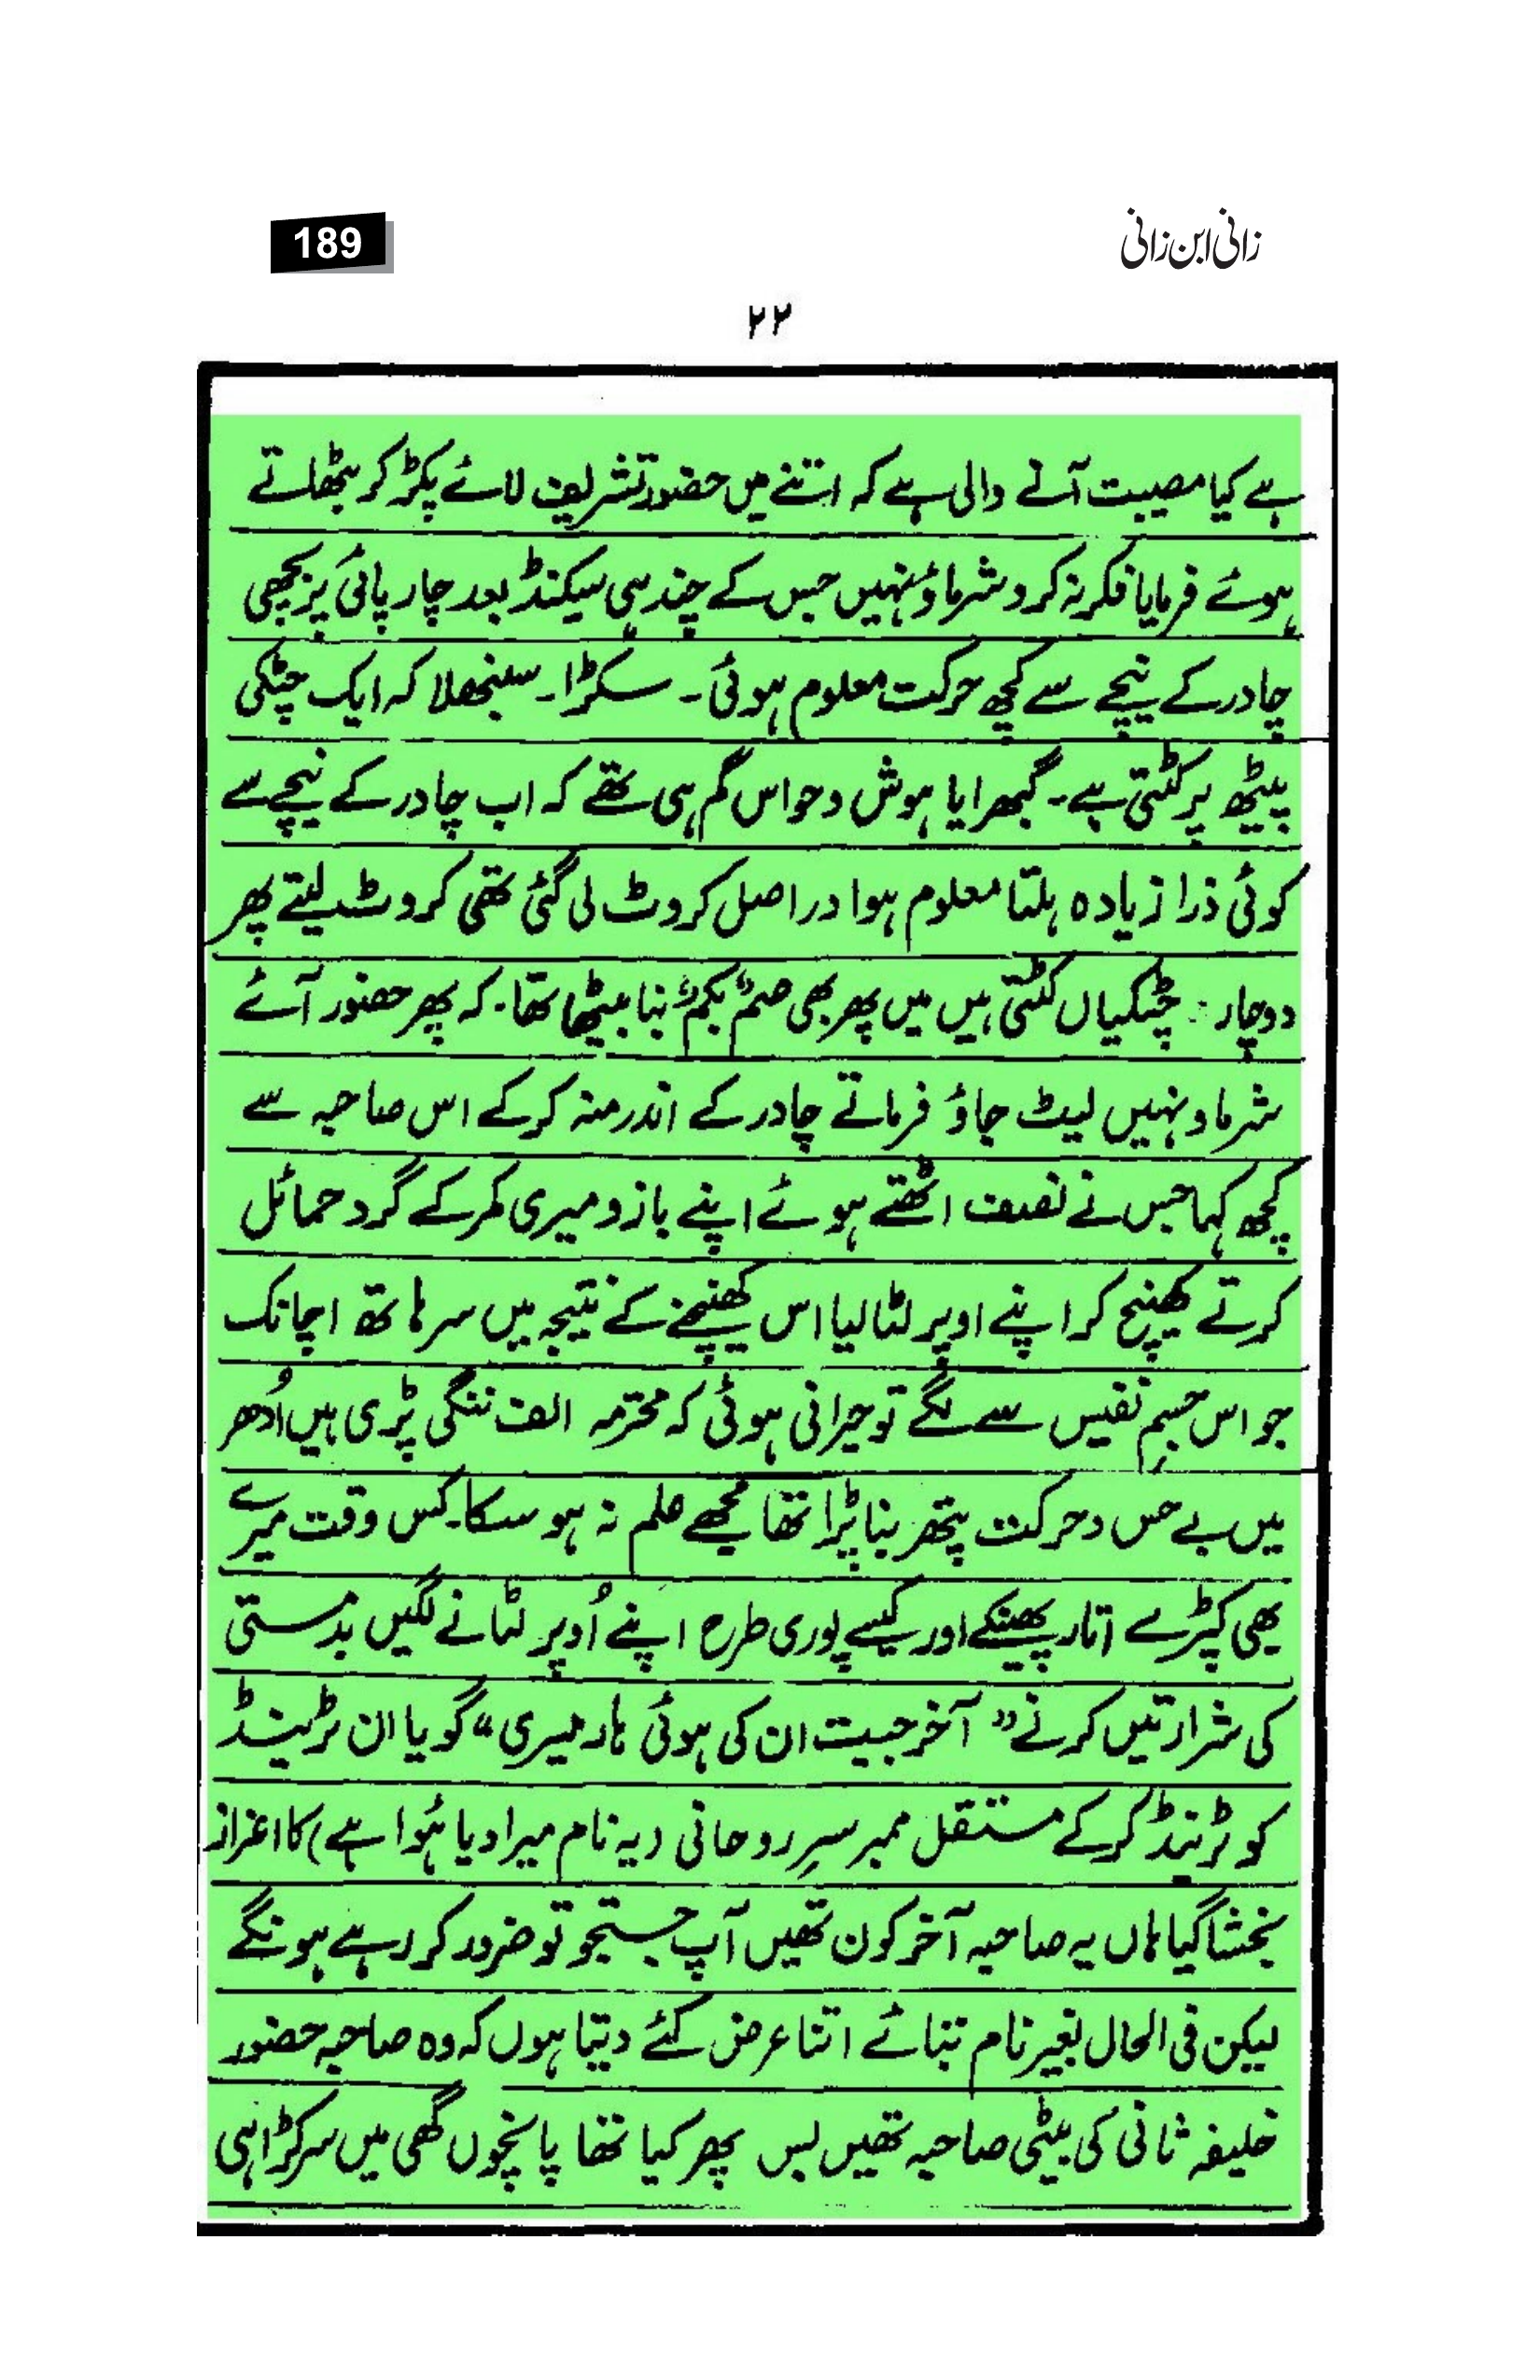 زانی ابن زانی
189
۲۲
ہے کیا مصیبت آنے والی ہے کہ اتنے میں حضور تشریف لائے پکڑ کر بٹھلاتے
ہوئے فرمایا فکر نہ کرو شرماؤ نہیں جس کے چند ہی سیکنڈ بعد چارپائی پر بچھی
چادر کے نیچے سے کچھ حرکت معلوم ہوئی۔ سکڑا۔ سنبھلا کہ ایک چٹکی
پیٹھ پر کٹتی ہے۔ گبھرایا ہوش و حواس گم ہی تھے کہ اب چادر کے نیچے سے
کوئی ذرا زیادہ ہلتا معلوم ہوا دراصل کروٹ لی گئی تھی کروٹ لیتے پھر
دوچار چٹکیاں کٹتی ہیں میں پھر بھی صمٌ بکمٌ بنا بیٹھا تھا۔ کہ پھر حضور آئے
شرماؤ نہیں لیٹ جاؤ فرماتے چادر کے اندر منہ کرکے اس صاحبہ سے
کچھ کہا جس نے نصف اٹھتے ہوئے اپنے بازو میری کمر کے گرد حمائل
کرتے کھینچ کر اپنے اوپر لٹا لیا اس کھینچنے کے نتیجہ میں سر ہاتھ اچانک
جو اس جسمِ نفیس سے لگے تو حیرانی ہوئی کہ محترمہ الف ننگی پڑی ہیں اُدھر
میں بے حس و حرکت پتھر بنا پڑا تھا مجھے علم نہ ہو سکا۔ کس وقت میرے
بھی کپڑے اتار پھینکے اور کیسے پوری طرح اپنے اُوپر لٹانے لگیں بدمستی
کی شرارتیں کرنے "آخر جیت ان کی ہوئی ہار میری" گویا ان ٹرینڈ
کو ٹرینڈ کرکے مستقل ممبر سرِ روحانی (یہ نام میرا دیا ہُوا ہے) کا اعزاز
بخشا گیا ہاں یہ صاحبہ آخر کون تھیں آپ جستجو تو ضرور کر رہے ہونگے
لیکن فی الحال بغیر نام بتائے اتنا عرض کئے دیتا ہوں کہ وہ صاحبہ حضور
خلیفہ ثانی کی بیٹی صاحبہ تھیں بس پھر کیا تھا پانچوں گھی میں سر کڑاہی